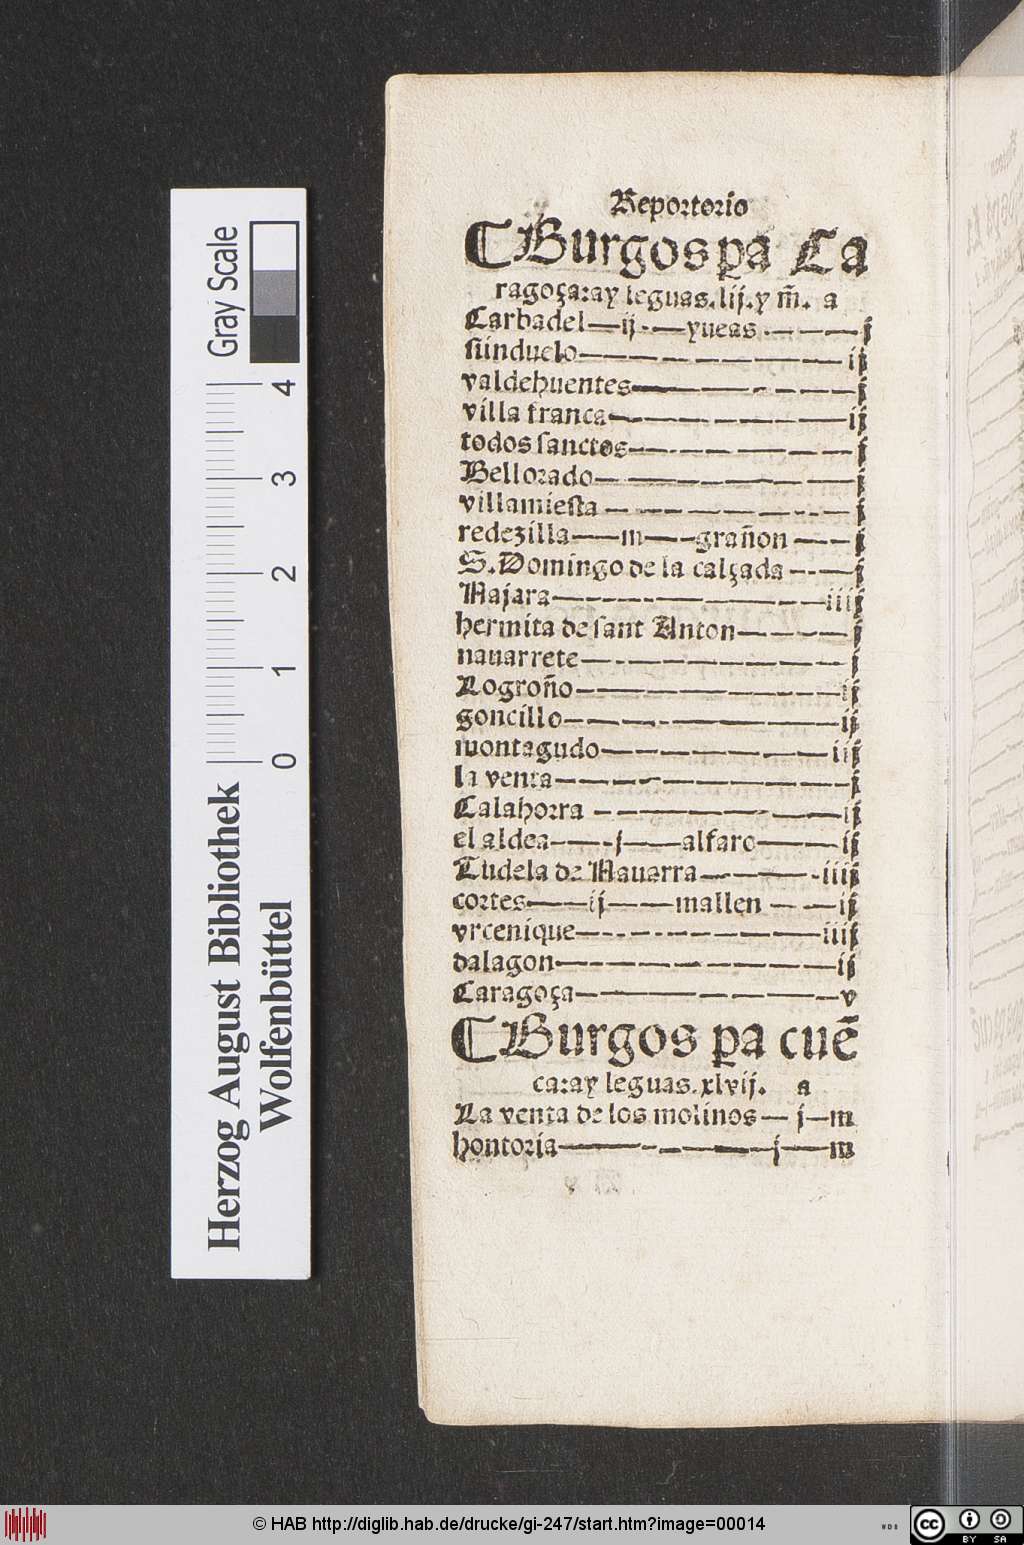 Reportorio
¶Burgos pa Ca
ragoça:ay leguas.lij.y m̃. a
Carbadel—ij.—yueas—j
sunduelo—ij
valdehuentes—j
villa franca—ij
todos sanctos—j
Bellorado—j
villamiesta—j
redezilla—m—grañon—j
S.Domingo de la calçada—j
Najara—iiij
hermita de sant Anton—j
nauarrete—j
Logroño—ij
goncillo—ij
montagudo—iij
la venta—j
Calahorra—ij
el aldea—j—alfaro—ij
Tudela de Nauarra—iiij
cortes—ij—mallen—ij
vrcenique—iiij
dalagon—ij
Caragoça—v
¶Burgos pa cuē
ca:ay leguas.xlvij. a
La venta de los molinos—j—m
hontoria—j—m
Gray Scale
0 1 2 3 4
Herzog August Bibliothek
Wolfenbüttel
© HAB http://diglib.hab.de/drucke/gi-247/start.htm?image=00014
WDB
cc BY SA